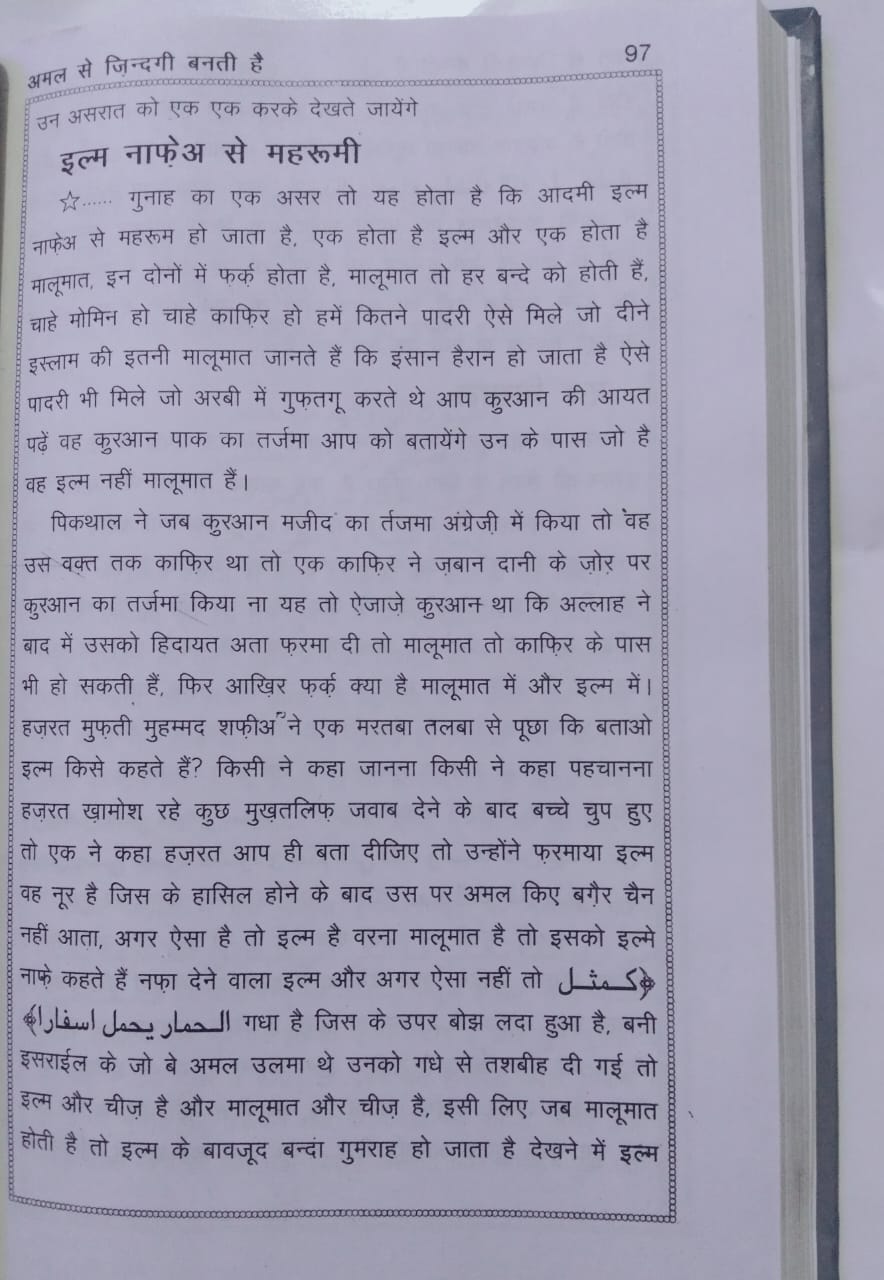 अमल से ज़िन्दगी बनती है 97
उन असरात को एक एक करके देखते जायेंगे
इल्म नाफ़ेअ से महरूमी
☆...... गुनाह का एक असर तो यह होता है कि आदमी इल्म
नाफ़ेअ से महरूम हो जाता है, एक होता है इल्म और एक होता है
मालूमात, इन दोनों में फ़र्क़ होता है, मालूमात तो हर बन्दे को होती हैं,
चाहे मोमिन हो चाहे काफ़िर हो हमें कितने पादरी ऐसे मिले जो दीने
इस्लाम की इतनी मालूमात जानते हैं कि इंसान हैरान हो जाता है ऐसे
पादरी भी मिले जो अरबी में गुफ़तगू करते थे आप क़ुरआन की आयत
पढ़ें वह क़ुरआन पाक का तर्जमा आप को बतायेंगे उन के पास जो है
वह इल्म नहीं मालूमात हैं।
पिकथाल ने जब क़ुरआन मजीद का र्तजमा अंग्रेज़ी में किया तो वह
उस वक़्त तक काफ़िर था तो एक काफ़िर ने ज़बान दानी के ज़ोर पर
क़ुरआन का तर्जमा किया ना यह तो ऐजाज़े क़ुरआन था कि अल्लाह ने
बाद में उसको हिदायत अता फ़रमा दी तो मालूमात तो काफ़िर के पास
भी हो सकती हैं, फिर आख़िर फ़र्क़ क्या है मालूमात में और इल्म में।
हज़रत मुफ़ती मुहम्मद शफ़ीअ ने एक मरतबा तलबा से पूछा कि बताओ
इल्म किसे कहते हैं? किसी ने कहा जानना किसी ने कहा पहचानना
हज़रत ख़ामोश रहे कुछ मुख़तलिफ़ जवाब देने के बाद बच्चे चुप हुए
तो एक ने कहा हज़रत आप ही बता दीजिए तो उन्होंने फ़रमाया इल्म
वह नूर है जिस के हासिल होने के बाद उस पर अमल किए बग़ैर चैन
नहीं आता, अगर ऐसा है तो इल्म है वरना मालूमात है तो इसको इल्मे
नाफ़े कहते हैं नफ़ा देने वाला इल्म और अगर ऐसा नहीं तो ﴿كمثل
الحمار يحمل اسفارا﴾ गधा है जिस के उपर बोझ लदा हुआ है, बनी
इसराईल के जो बे अमल उलमा थे उनको गधे से तशबीह दी गई तो
इल्म और चीज़ है और मालूमात और चीज़ है, इसी लिए जब मालूमात
होती है तो इल्म के बावजूद बन्दा गुमराह हो जाता है देखने में इल्म